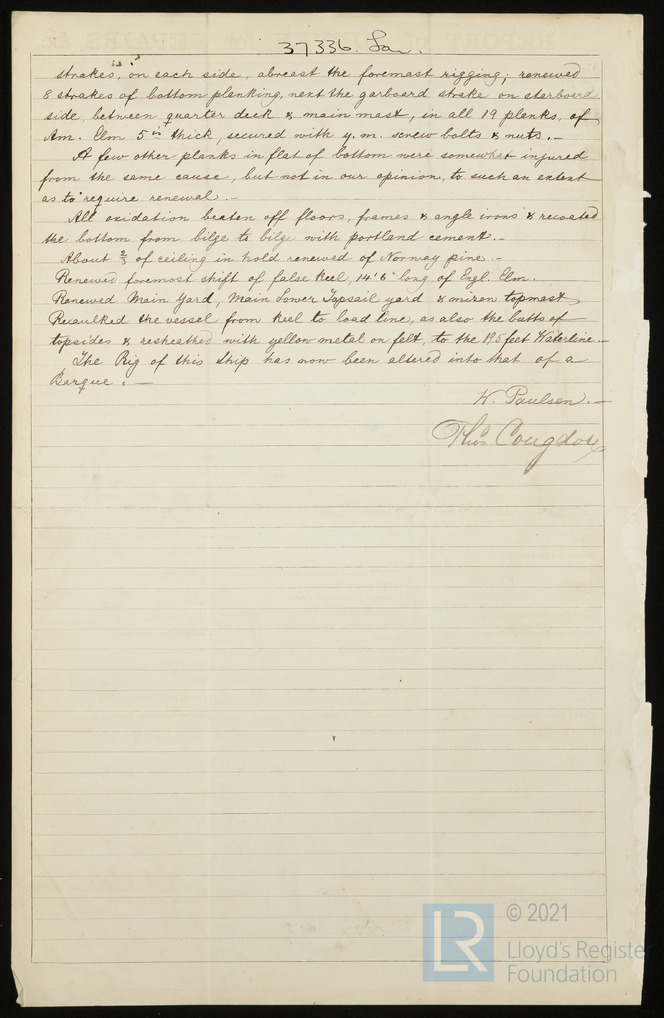 37336. Lon.
strakes, on each side, abreast the foremast rigging; renewed
8 strakes of bottom planking, next the garboard strake on starboard
side, between quarter deck & main mast, in all 19 planks, of
Am. Elm 5 in thick, secured with y. m. screw bolts & nuts. –
A few other planks in flat of bottom were somewhat injured
from the same cause, but not in our opinion, to such an extent
as to require renewal. –
All oxidation beaten off floors, frames & angle irons & recoated
the bottom from bilge to bilge with portland cement. –
About 2/3 of ceiling in hold renewed of Norway pine. –
Renewed foremost shift of false keel, 14'6" long, of Engl. Elm.
Renewed Main Yard, Main Lower Topsail yard & mizen topmast
Recaulked the vessel from keel to load line, as also the butts of
topsides & resheathed with yellow metal on felt, to the 19.5 feet Waterline. –
The Rig of this ship has now been altered into that of a
Barque. –
W. Paulsen. –
Thos Congdon
© 2021
LR
Lloyd's Register
Foundation